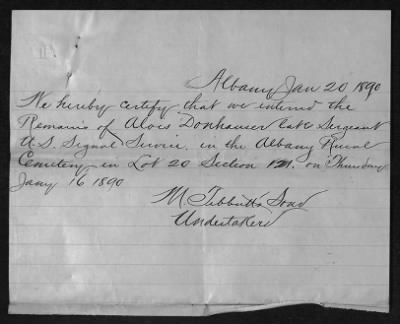 Albany Jan 20 1890
We hereby certify that we interred the
Remains of Alois Donhauser late Sergeant
U.S. Signal Service. in the Albany Rural
Cemetery in Lot 20 Section 121. on Thursday
Jany 16 1890
M. Tebbutts Sons
Undertakers